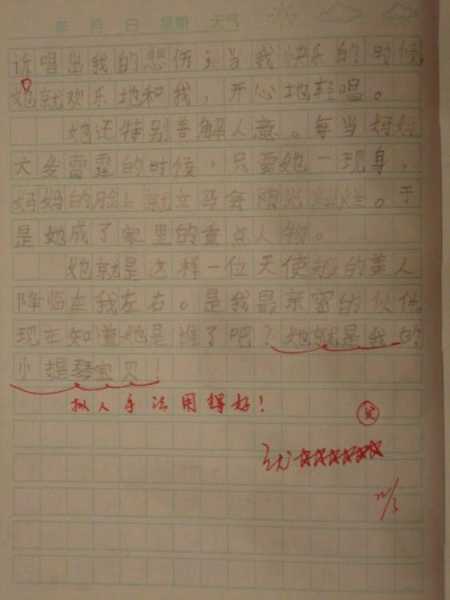 年 月 日 星期 天气
诉唱出我的悲伤；当我快乐的时候，
她就欢乐地和我，开心地轻唱。
她还特别善解人意。每当妈妈
大发雷霆的时候，只要她一现身，
妈妈的脸上就立马会阳光灿烂。于
是她成了家里的重点人物。
她就是这样一位天使般的美人
降临在我左右。是我最亲密的伙伴
现在知道她是谁了吧？她就是我的
小提琴宝贝！
拟人手法用得好！
优